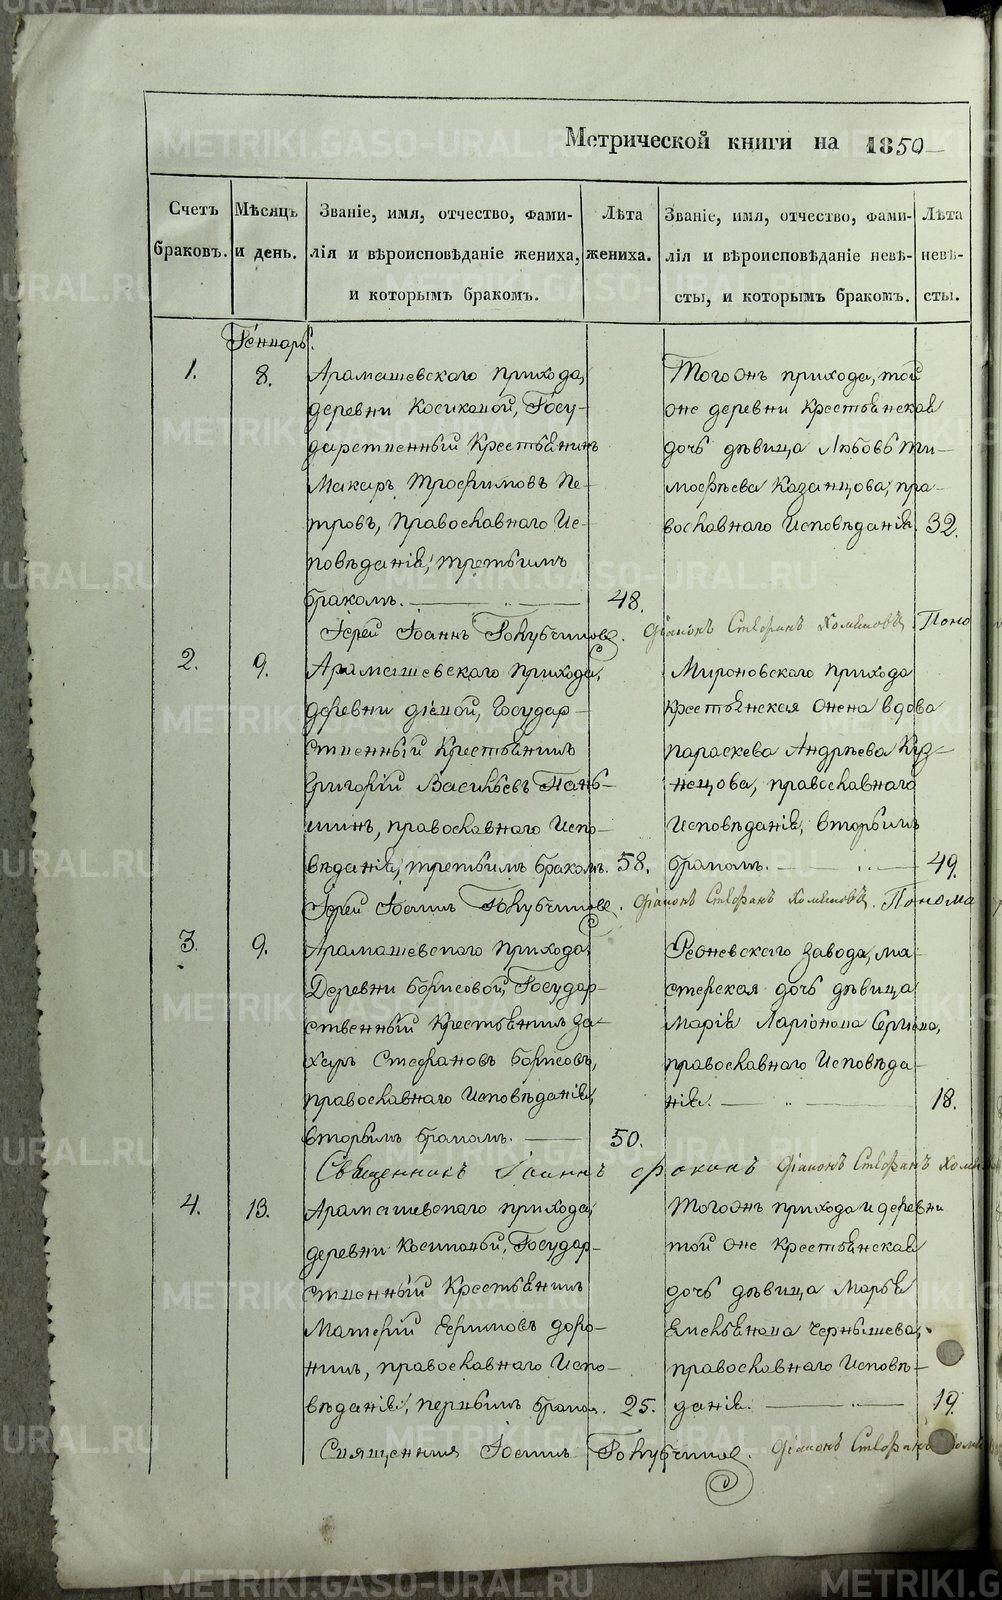 Метрической книги на 1850
Счетъ браковъ.
Мѣсяцъ и день.
Званіе, имя, отчество, фами-
лія и вѣроисповѣданіе жениха,
и которымъ бракомъ.
Лѣта жениха.
Званіе, имя, отчество, фами-
лія и вѣроисповѣданіе невѣ-
сты, и которымъ бракомъ.
Лѣта невѣ-
сты.
Генварь.
1.
8.
Арамашевскаго прихода,
деревни Косиковой, Госу-
дарственный Крестьянинъ
Макаръ Трофимовъ Пе-
тровъ, Православнаго Ис-
повѣданія, третьимъ
бракомъ.
48.
Тогожъ прихода, той
же деревни Крестьянская
дочь дѣвица Любовь Ти-
мофѣева Казанцова, пра-
вославнаго Исповѣданія.
32.
Іерей Іоаннъ Голубчиковъ. Діаконъ Стефанъ Холмаковъ. Поно
2.
9.
Арамашевскаго прихода,
деревни Дѣевой, Государ-
ственный Крестьянинъ
Григорій Васильевъ Пань-
шинъ, православнаго Испо-
вѣданія, третьимъ бракомъ.
58.
Мироновскаго прихода
Крестьянская жена вдова
Параскева Андрѣева Куз-
нецова, православнаго
Исповѣданія, вторымъ
бракомъ.
49.
Іерей Іоаннъ Голубчиковъ. Діаконъ Стефанъ Холмаковъ. Понома
3.
9.
Арамашевскаго прихода,
Деревни Борисовой, Государ-
ственный Крестьянинъ За-
харъ Стефановъ Борисовъ,
православнаго Исповѣданія,
вторымъ бракомъ.
50.
Режевскаго завода, ма-
стерская дочь дѣвица
Марія Ларіонова Сергѣева,
православнаго Исповѣда-
нія.
18.
Священникъ Іоаннъ Фокинъ Діаконъ Стефанъ Холма
4.
13.
Арамашевскаго прихода,
деревни Косиковой, Государ-
ственный Крестьянинъ
Матвій Ефимовъ Доро-
нинъ, православнаго Испо-
вѣданія, первымъ бракомъ.
25.
Тогожъ прихода и деревни
той же Крестьянская
дочь дѣвица Марья
Емельянова Чернышева,
православнаго Исповѣ-
данія.
19.
Священникъ Іоаннъ Голубчиковъ. Діаконъ Стефанъ Холма
METRIKI.GASO-URAL.RU